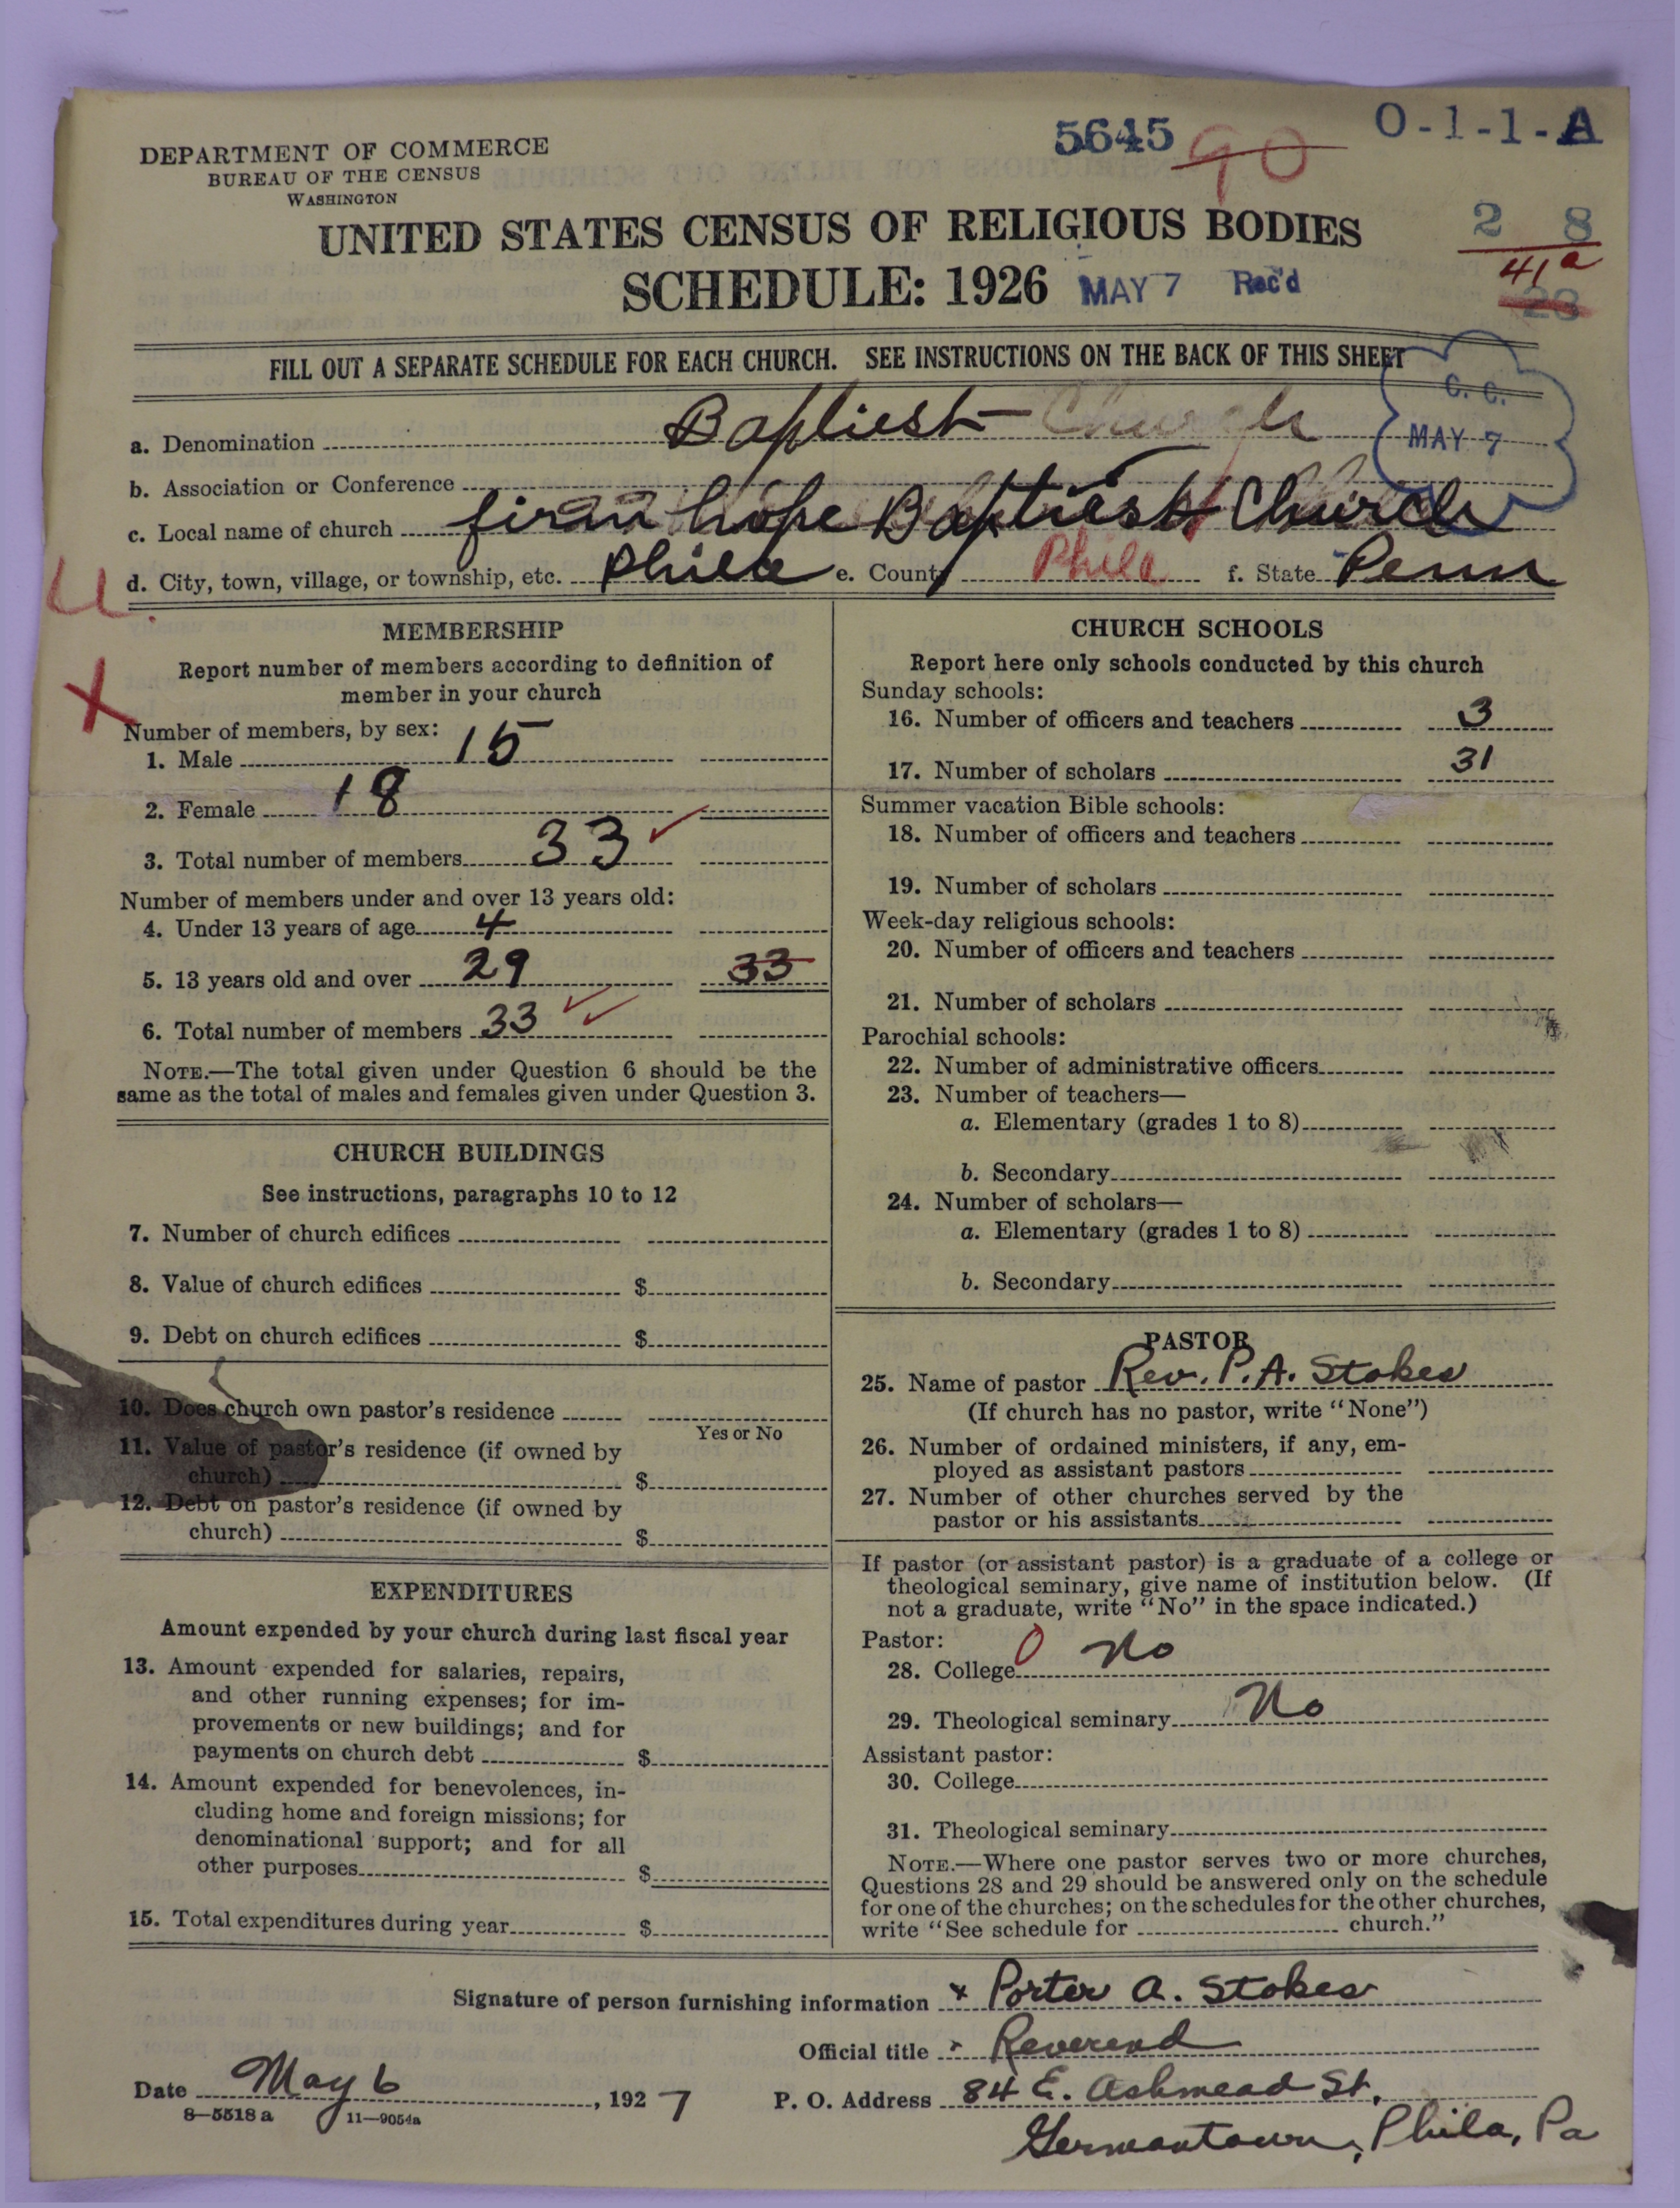 5645 90 O-1-1-A
DEPARTMENT OF COMMERCE
BUREAU OF THE CENSUS
WASHINGTON
2 8
41a
23
UNITED STATES CENSUS OF RELIGIOUS BODIES
SCHEDULE: 1926 MAY 7 Rec'd
FILL OUT A SEPARATE SCHEDULE FOR EACH CHURCH. SEE INSTRUCTIONS ON THE BACK OF THIS SHEET
C. C.
MAY 7
a. Denomination Baptiest Church
b. Association or Conference
c. Local name of church firm hope Baptiest Church
d. City, town, village, or township, etc. Phila e. County Phila f. State Penn
U
X
MEMBERSHIP
Report number of members according to definition of
member in your church
Number of members, by sex:
1. Male 15
2. Female 18
3. Total number of members 33
Number of members under and over 13 years old:
4. Under 13 years of age 4
5. 13 years old and over 29 33
6. Total number of members 33
NOTE.—The total given under Question 6 should be the
same as the total of males and females given under Question 3.
CHURCH BUILDINGS
See instructions, paragraphs 10 to 12
7. Number of church edifices
8. Value of church edifices $
9. Debt on church edifices $
10. Does church own pastor's residence
Yes or No
11. Value of pastor's residence (if owned by
church) $
12. Debt on pastor's residence (if owned by
church) $
EXPENDITURES
Amount expended by your church during last fiscal year
13. Amount expended for salaries, repairs,
and other running expenses; for im-
provements or new buildings; and for
payments on church debt $
14. Amount expended for benevolences, in-
cluding home and foreign missions; for
denominational support; and for all
other purposes $
15. Total expenditures during year $
CHURCH SCHOOLS
Report here only schools conducted by this church
Sunday schools:
16. Number of officers and teachers 3
17. Number of scholars 31
Summer vacation Bible schools:
18. Number of officers and teachers
19. Number of scholars
Week-day religious schools:
20. Number of officers and teachers
21. Number of scholars
Parochial schools:
22. Number of administrative officers
23. Number of teachers—
a. Elementary (grades 1 to 8)
b. Secondary
24. Number of scholars—
a. Elementary (grades 1 to 8)
b. Secondary
PASTOR
25. Name of pastor Rev. P. A. Stokes
(If church has no pastor, write "None")
26. Number of ordained ministers, if any, em-
ployed as assistant pastors
27. Number of other churches served by the
pastor or his assistants
If pastor (or assistant pastor) is a graduate of a college or
theological seminary, give name of institution below. (If
not a graduate, write "No" in the space indicated.)
Pastor:
28. College 0 No
29. Theological seminary No
Assistant pastor:
30. College
31. Theological seminary
NOTE.—Where one pastor serves two or more churches,
Questions 28 and 29 should be answered only on the schedule
for one of the churches; on the schedules for the other churches,
write "See schedule for church."
Signature of person furnishing information x Porter A. Stokes
Official title x Reverend
Date May 6, 1927 P. O. Address 84 E. Ashmead St.
8—5518 a 11—9054a
Germantown, Phila, Pa